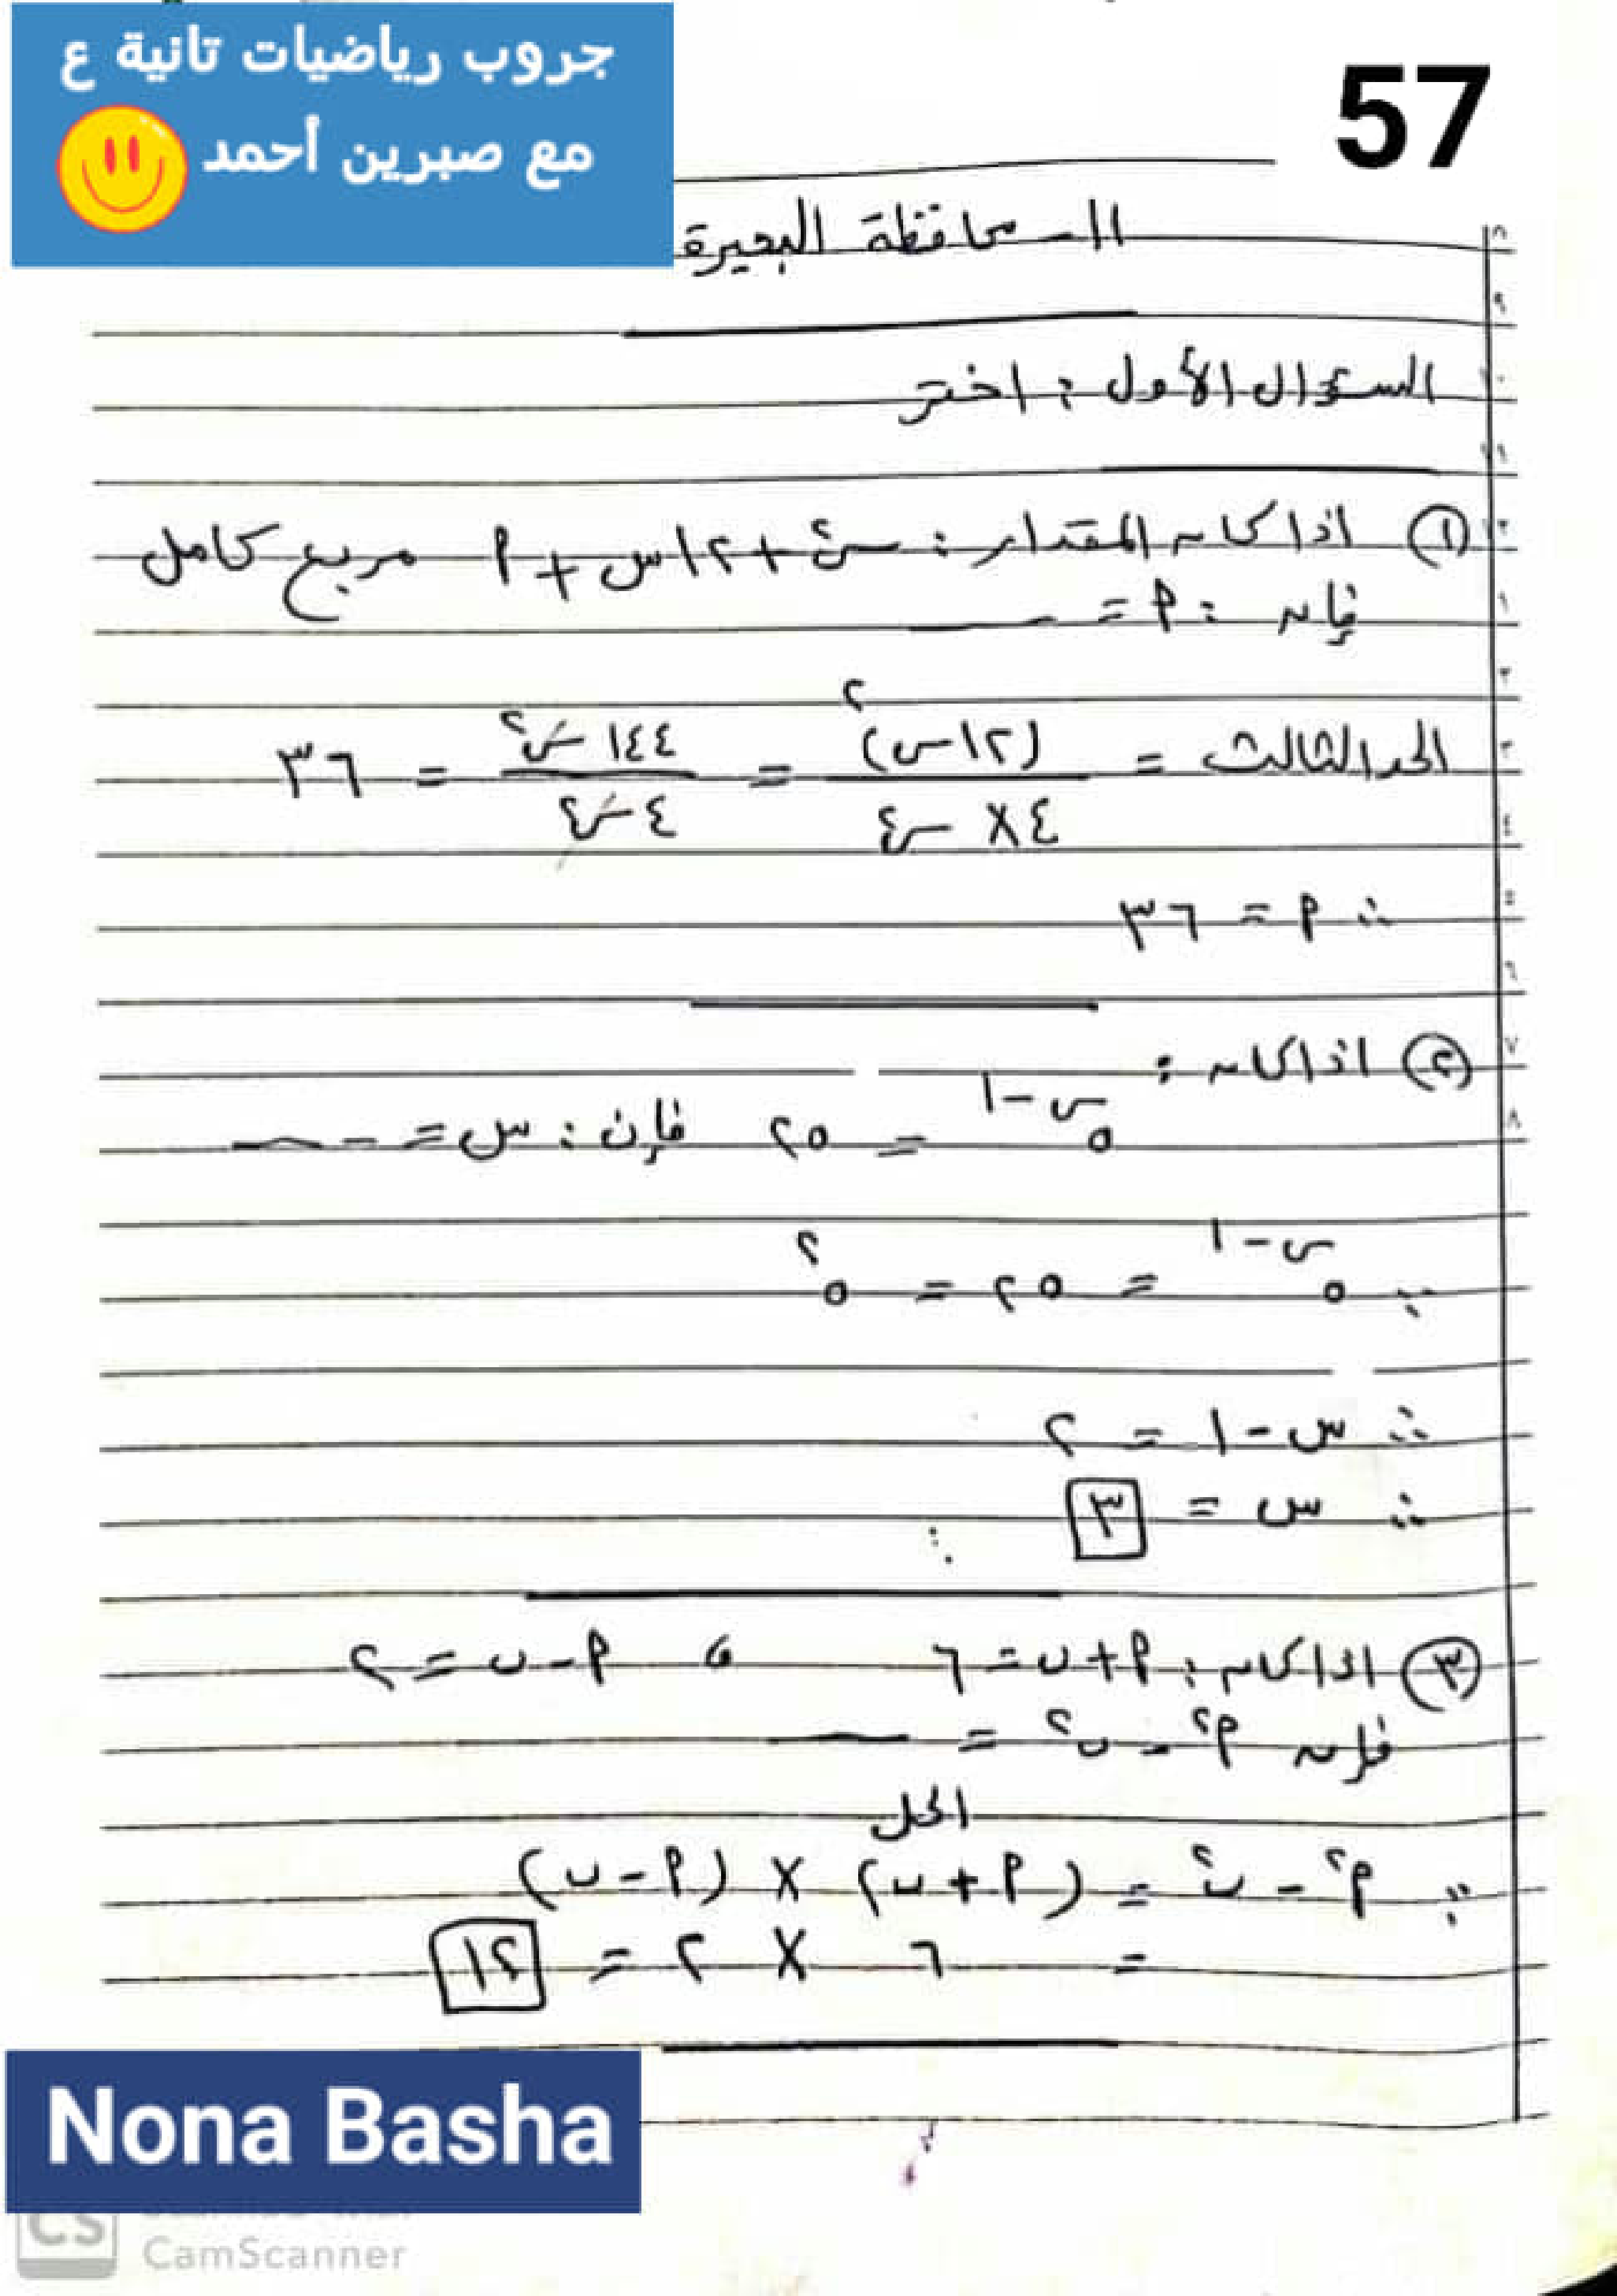 جروب رياضيات تانية ع
مع صبرين أحمد
57
١١- محافظة البحيرة
السؤال الأول : اختر
① اذا كان المقدار : س² + ١٢س + ٩ مربع كامل
فإن : ٩ = ــــ
الحد الثالث = (١٢س)² / ٤ × س² = ١٤٤ س² / ٤ س² = ٣٦
∴ ٩ = ٣٦
② اذا كان :
٥^(س-١) = ٢٥ فإن : س = ــــ
∵ ٥^(س-١) = ٢٥ = ٥²
∴ س - ١ = ٢
∴ س = ٣
③ اذا كان : ٩ + ب = ٦ ، ٩ - ب = ٢
فإن ٩² - ب² = ــــ
الحل
∵ ٩² - ب² = (٩ + ب) × (٩ - ب)
= ٦ × ٢ = ١٢
Nona Basha
CS
CamScanner